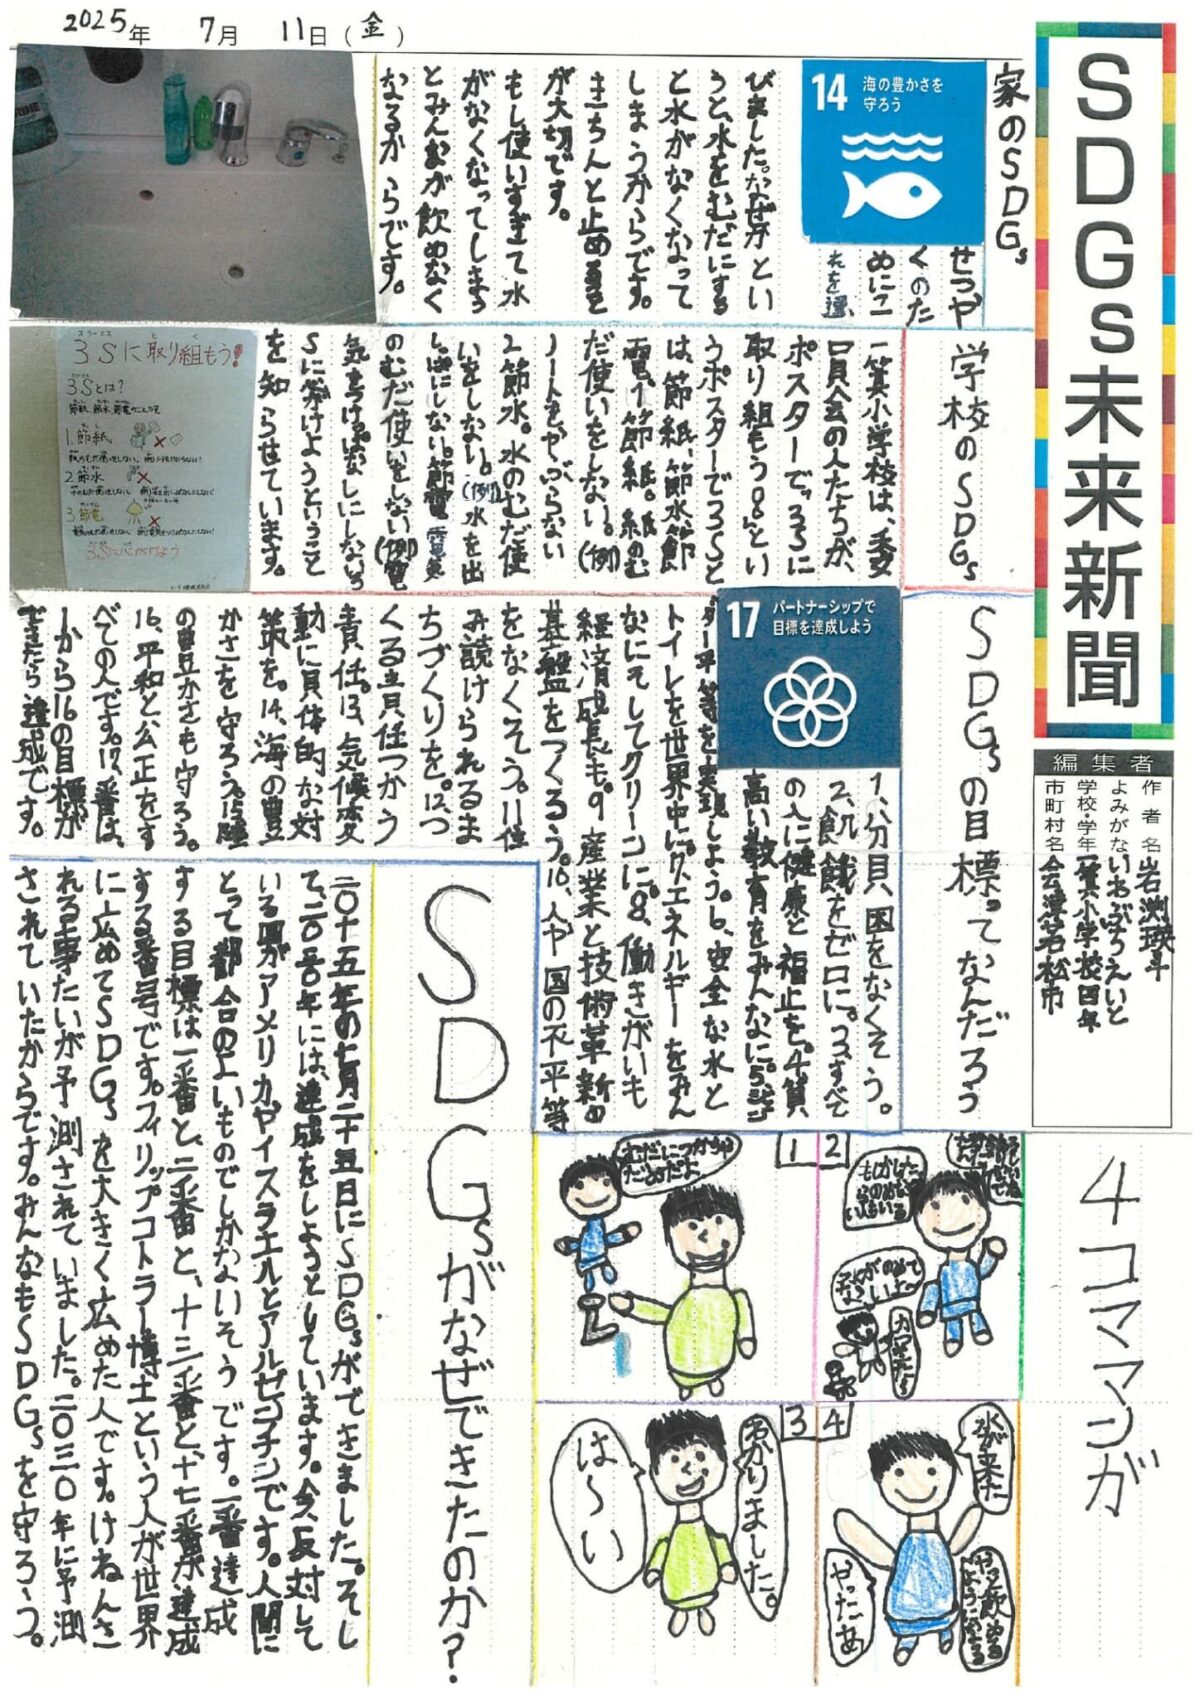 2025年 7月 11日(金)
SDGs未来新聞
編集者
作者名 岩渕瑛斗
よみがな いわぶちえいと
学校・学年 一箕小学校四年
市町村名 会津若松市
家のSDGs
14 海の豊かさを
守ろう
せつや
くのた
めにこ
れを選
びました。なぜかとい
うと、水をむだにする
と水がなくなって
しまうからです。
きちんと止めること
が大切です。
もし使いすぎて水
がなくなってしまう
とみんなが飲めなく
なるからです。
学校のSDGs
一箕小学校は、委
員会の人たちが、
ポスターで、3Sに
取り組もう!!とい
うポスターで3Sと
は、節紙、節水、節
電。1節紙。紙のむ
だ使いをしない。(例)
ノートをやぶらない
2節水。水のむだ使
いをしない。(例)水を出
しっぱにしない。節電 電気
のむだ使いをしない(例)電
気をつけっぱなしにしない3
Sに心がけようということ
を知らせています。
スリーエス
3Sに取り組もう!
3Sとは?
節紙、節水、節電のことだよ
1.節紙
2.節水
3.節電
3Sに心がけよう
SDGsの目標ってなんだろう
17 パートナーシップで
目標を達成しよう
1、分貝、国をなくそう。
2、飢餓をゼロに。3、すべて
の人に健康と福止を。4、質
高い教育をみんなに。5、ジェン
ダー平等を実現しよう。6、安全な水と
トイレを世界中に。7、エネルギーをみん
なにそしてクリーンに。8、働きがいも
経済成長も。9産業と技術革新の
基盤をつくろう。10、人や国の不平等
をなくそう。11住
み続けられるま
ちづくりを。12、つ
くる責任つかう
責任。13、気候変
動に具体的な対
策を。14、海の豊
かさを守ろう。15陸
の豊かさも守ろう。
16、平和と公正をす
べての人です。17、番は、
1から16の目標が
できたら達成です。
SDGsがなぜできたのか?
二〇十五年の七月二十五日にSDGsができました。そし
て、二〇三〇年には、達成をしようとしています。今、反対して
いる国がアメリカやイスラエルとアルゼンチンです。人間に
とって都合のよいものでしかないそうです。一番達成
する目標は一番と、二番と、十三番と、十七番が達成
する番号です。フィリップコトラー博士という人が世界
に広めてSDGsを大きく広めた人です。けねんさ
れる事たいが予測されていました。二〇三〇年に予測
されていたからです。みんなもSDGsを守ろう。
4コママンガ
1
むだにつかっちゃ
だめだよ
2
もしかした
水がのめて
いいよ〜
3
わかりました。
は〜い
4
水が来た
やっと飲める
ようになった
やったあ